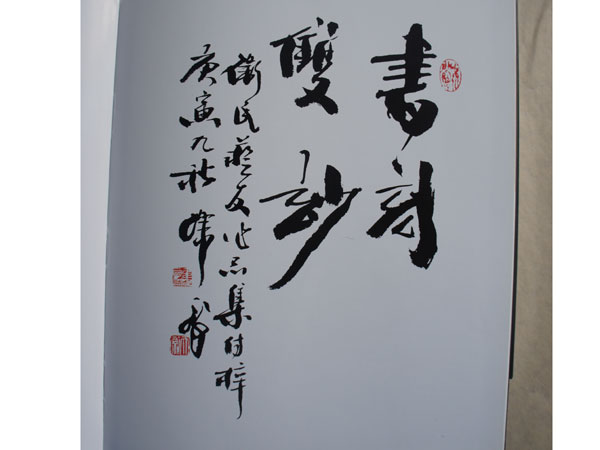 書刻
雙妙
衛民藝友作品集付梓
庚寅九秋